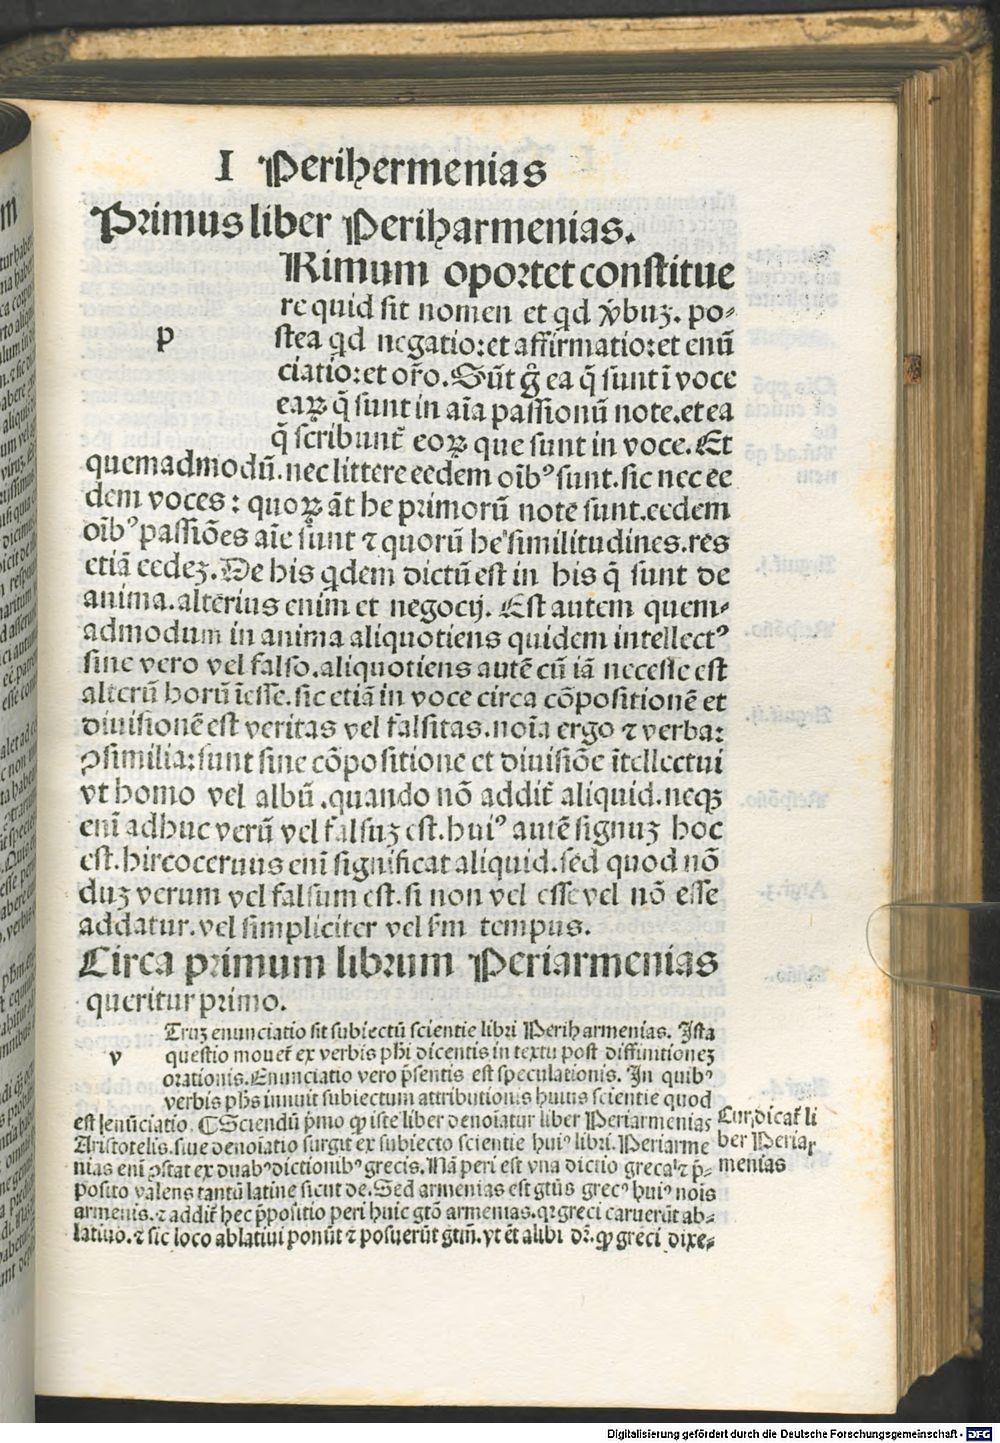 I Perihermenias
Primus liber Periharmenias.
Rimum oportet constitue
re quid sit nomen et qd v̉buꝫ. po⸗
p
stea qd negatio:et affirmatio:et enũ
ciatio:et or̃o. Sũt g̃ ea q̃ sunt ĩ voce
eaꝝ q̃ sunt in aĩa passionũ note.et ea
q̃ scribunt̃ eoꝝ que sunt in voce. Et
quemadmodũ.nec littere eedem oĩbꝰ sunt.sic nec ee
dem voces: quoꝝ ãt he primorũ note sunt.eedem
oĩbꝰ passiões aĩe sunt ⁊ quorũ he similitudines.res
etiã eedeꝫ. De his qdem dictũ est in his q̃ sunt de
anima.alterius enim et negocij. Est autem quem⸗
admodum in anima aliquotiens quidem intellectꝰ
sine vero vel falso.aliquotiens autẽ cũ iã necesse est
alterũ horũ ĩesse.sic etiã in voce circa cõpositionẽ et
diuisionẽ est veritas vel falsitas.noĩa ergo ⁊ verba:
ꝯsimilia:sunt sine cõpositione et diuisiõe ĩtellectui
vt homo vel albũ .quando nõ addit̃ aliquid.neqꝫ
enĩ adhuc verũ vel falsuꝫ est.huiꝰ autẽ signuꝫ hoc
est.hircoceruus enĩ significat aliquid.sed quod nõ
duꝫ verum vel falsum est.si non vel esse vel nõ esse
addatur.vel simpliciter vel s̃m tempus.
Circa primum librum Periarmenias
queritur primo.
Truꝫ enunciatio sit subiectũ scientie libri Periharmenias. Ista
v
questio mouet̃ ex verbis ph̃i dicentis in textu post diffinitioneꝫ
orationis.Enunciatio vero p̃sentis est speculationis. In quibꝰ
verbis ph̃s innuit subiectum attributionis huius scientie quod
est enũciatio. ¶Sciendũ p̃mo ꝙ iste liber denoĩatur liber Periarmenias
Aristotelis.siue denoĩatio surgit ex subiecto scientie huiꝰ libri.Periarme
nias enĩ ꝯstat ex duabꝰ dictionibꝰ grecis.Nã peri est vna dictio greca ⁊ p̃⸗
posito valens tantũ latine sicut de.Sed armenias est gtũs grecꝰ huiꝰ nois
armenis.⁊ addit̃ hec p̃positio peri huic gtõ armenias.qꝛ greci caruerũt ab⸗
latiuo.⁊ sic loco ablatiui ponũt ⁊ posuerũt gtm̃.vt ẽt alibi dꝛ̃.ꝙ greci dixe⸗
Cur dicat̃ li
ber Periar
menias
Digitalisierung gefördert durch die Deutsche Forschungsgemeinschaft - DFG